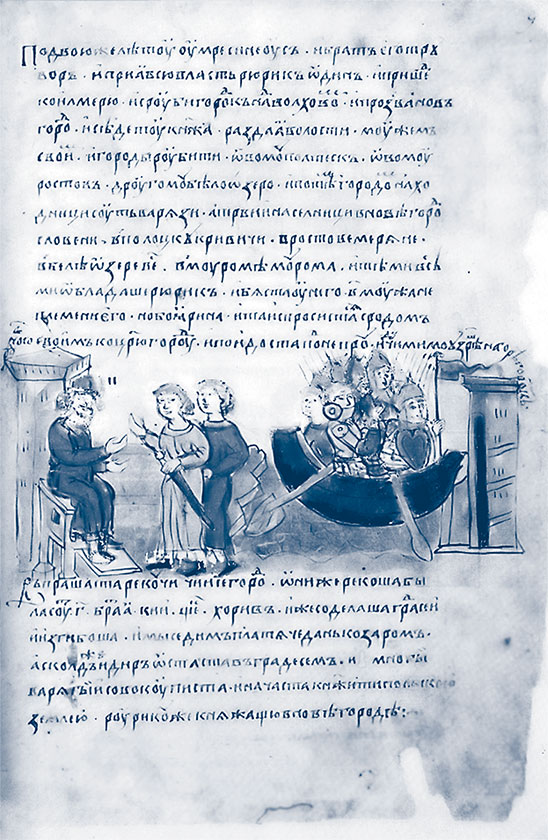 По двою же лѣтоу оумре синеоусъ . и братъ его тру
воръ . и прия всю власть рюрикъ ѡдинъ . и пришѣ
ко илмерю . и сроуби городокъ на волхово . и прозва новъ
горо . и сѣде тоу княжа . раздаа волости . моужемъ
свои . и городы роубити . ѡвомоу полтискъ . ѡвомоу
ростокъ . дроугомоу бѣлоѡзеро . и по тѣ городо нахо
дници соуть варязи . а първии населници в новѣгоро
словени . в полоцкъ кривичи . в ростове меряне .
в бѣлеѡзере весь . в моуромѣ моурома . и тѣми всѣ
ми ѡбладаше рюрикъ . и бяста оу него . в моужа не
племени его . но боярина . и та испросистася с родомъ
своимъ ко црюгороу . и поидоста по непро . и идоучи мимо на горѣ
въпрашаста рекочи чии се горо . ѡни же рекоша бы
ла соу г . браа . кии . щеть . хоривъ . иже соделаша грасеи
и изгибоша . и мы седимъ платяче дань козаромъ .
асколдъ же и дир ѡстаста въ граде семъ . и многы
варягы совокоуписта . и начаста княжити польскою
землею . роурикоу же княжащю в новѣгороде :